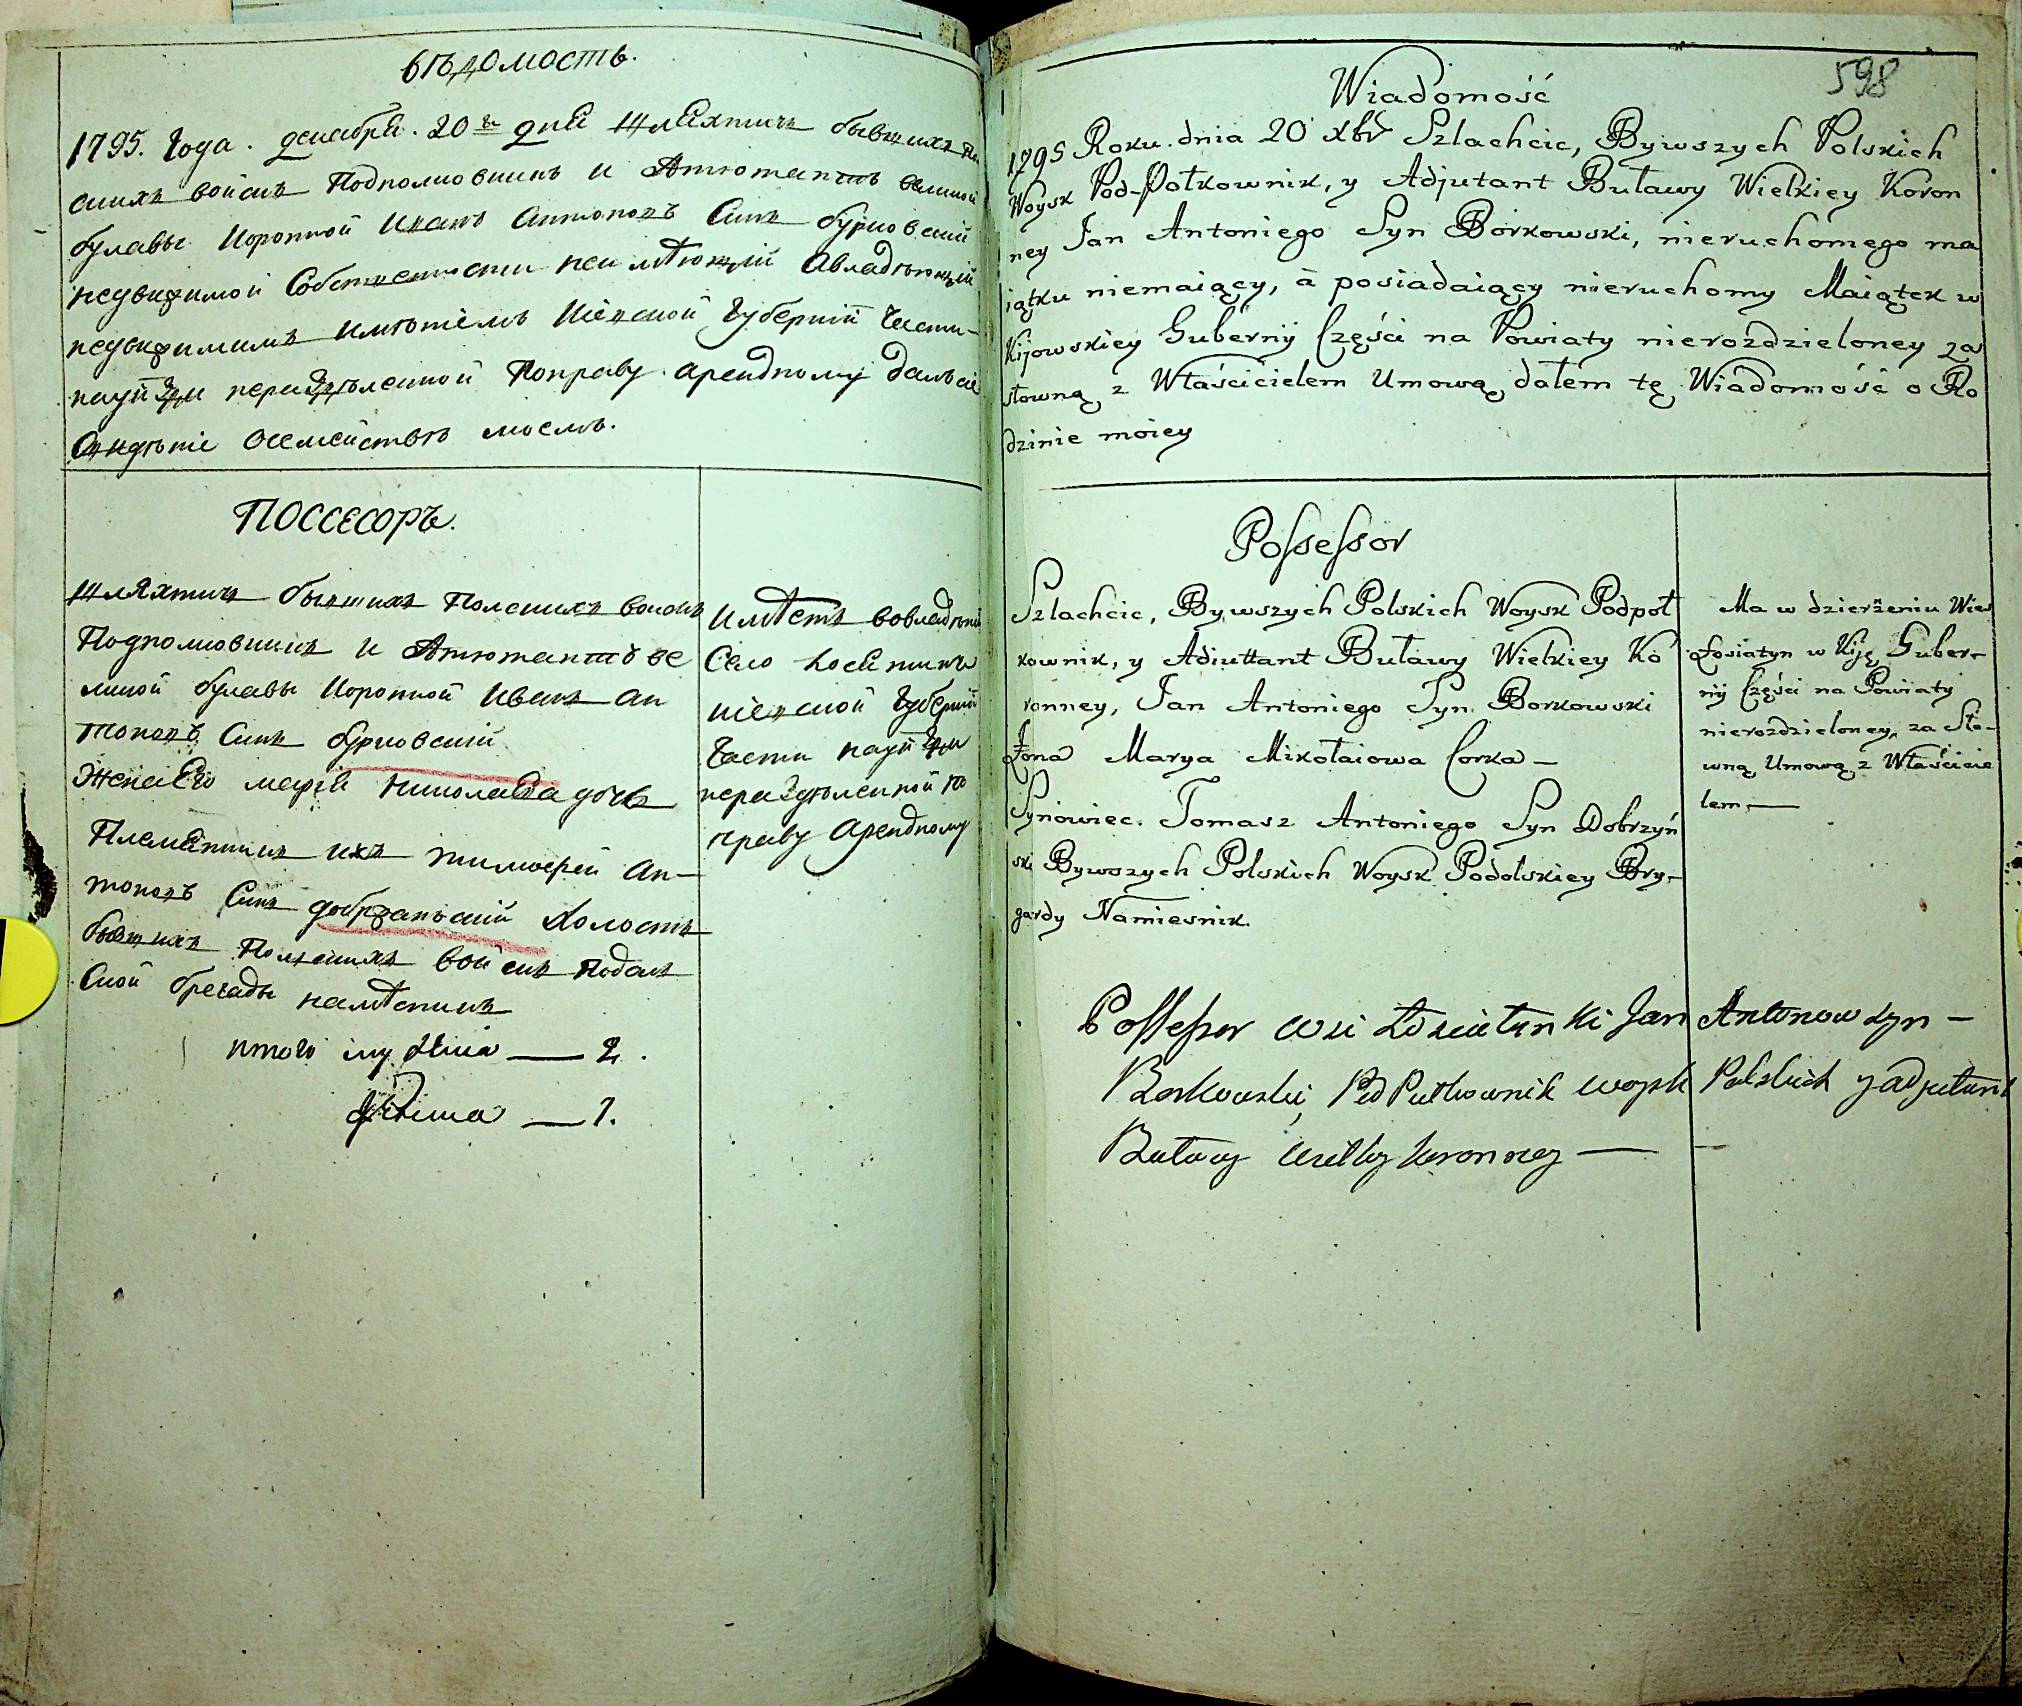 вѣдомость.
1795. Года. декабря. 20го дня Шляхтичъ бывшихъ По
скихъ войскъ Подполковникъ и Атютантъ великой
булавы Коронной Иванъ Антоновъ Синъ бурковский
недвижимой Собственности неимѣющий авладѣющий
недвижимимъ имѣниемъ Киевской Губернии Части
науѣзди нераздѣленной Поправу арендному далъ сие
Свидѣние осемействѣ моемъ.
Поссесоръ.
Шляхтичъ бывшихъ Полскихъ воискъ
Подполковникъ и Атютантъ ве
ликой булавы Коронной Иванъ Ан
тоновъ Синъ бурковский
Жена Его мария Николаева дочь
Племянникъ ихъ тимофей Ан-
тоновъ Синъ добржанский холостъ
бывшихъ Полскихъ войскъ Подоль
Ской брегады намѣсникъ
итого мужеска — 2.
женска — 1.
Имѣетъ вовладѣнии
Село Лосятинъ
Киевской Губернии
Части науѣзди
нераздѣленной по
праву арендному
598
Wiadomość
1795 Roku. dnia 20 xbr Szlachcic, Bywszych Polskich
Woysk Pod-Połkownik, y Adjutant Buławy Wielkiey Koron
ney Jan Antoniego Syn Borkowski, nieruchomego ma
iątku niemaiący, à posiadaiący nieruchomy Maiątek w
Kijowskiey Gubernij Części na Powiaty nierozdzieloney za
słowną z Właścicielem Umową dałem tę Wiadomość o Ro
dzinie moiey
Possessor
Szlachcic, Bywszych Polskich Woysk Podpoł
kownik, y Adiuttant Buławy Wielkiey Ko
ronney, Jan Antoniego Syn Borkowski
Żona Marya Mikołaiowa Corka —
Synowiec. Tomasz Antoniego Syn Dobrzyń
ski Bywszych Polskich Woysk Podolskiey Bry-
gardy Namiesnik.
Ma w dzierżeniu Wies
Łosiatyn w Kijo Guber-
nij Części na Powiaty
nierozdzieloney, za Sło-
wną Umową z Właścicie
lem. —
Possessor wsi Łosiatynki Jan Antonow syn —
Borkowski, Pod Pułkownik woysk Polskich y adjutant
Buławy wielky koronney —